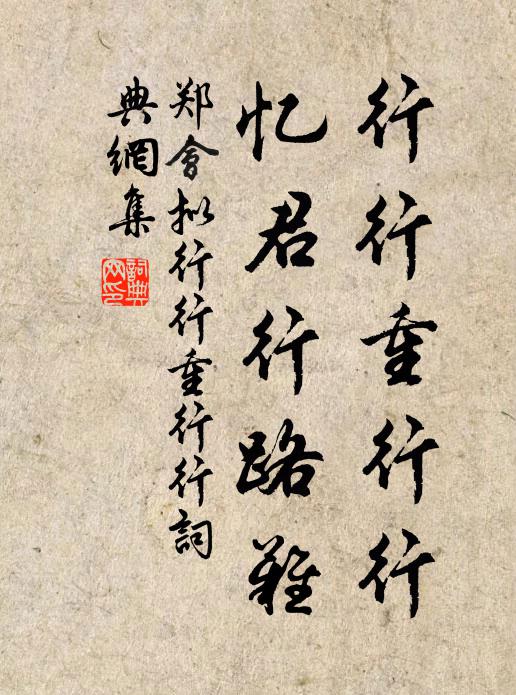 行行重行行
忆君行路难
郑會拟行行重行行詞
典網集
詞典
网印